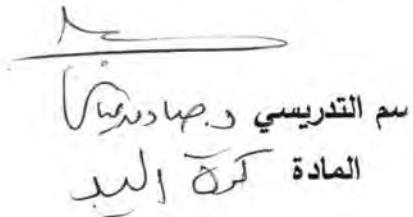 سم التدريسي د. صادق عباس
المادة كرة اليد